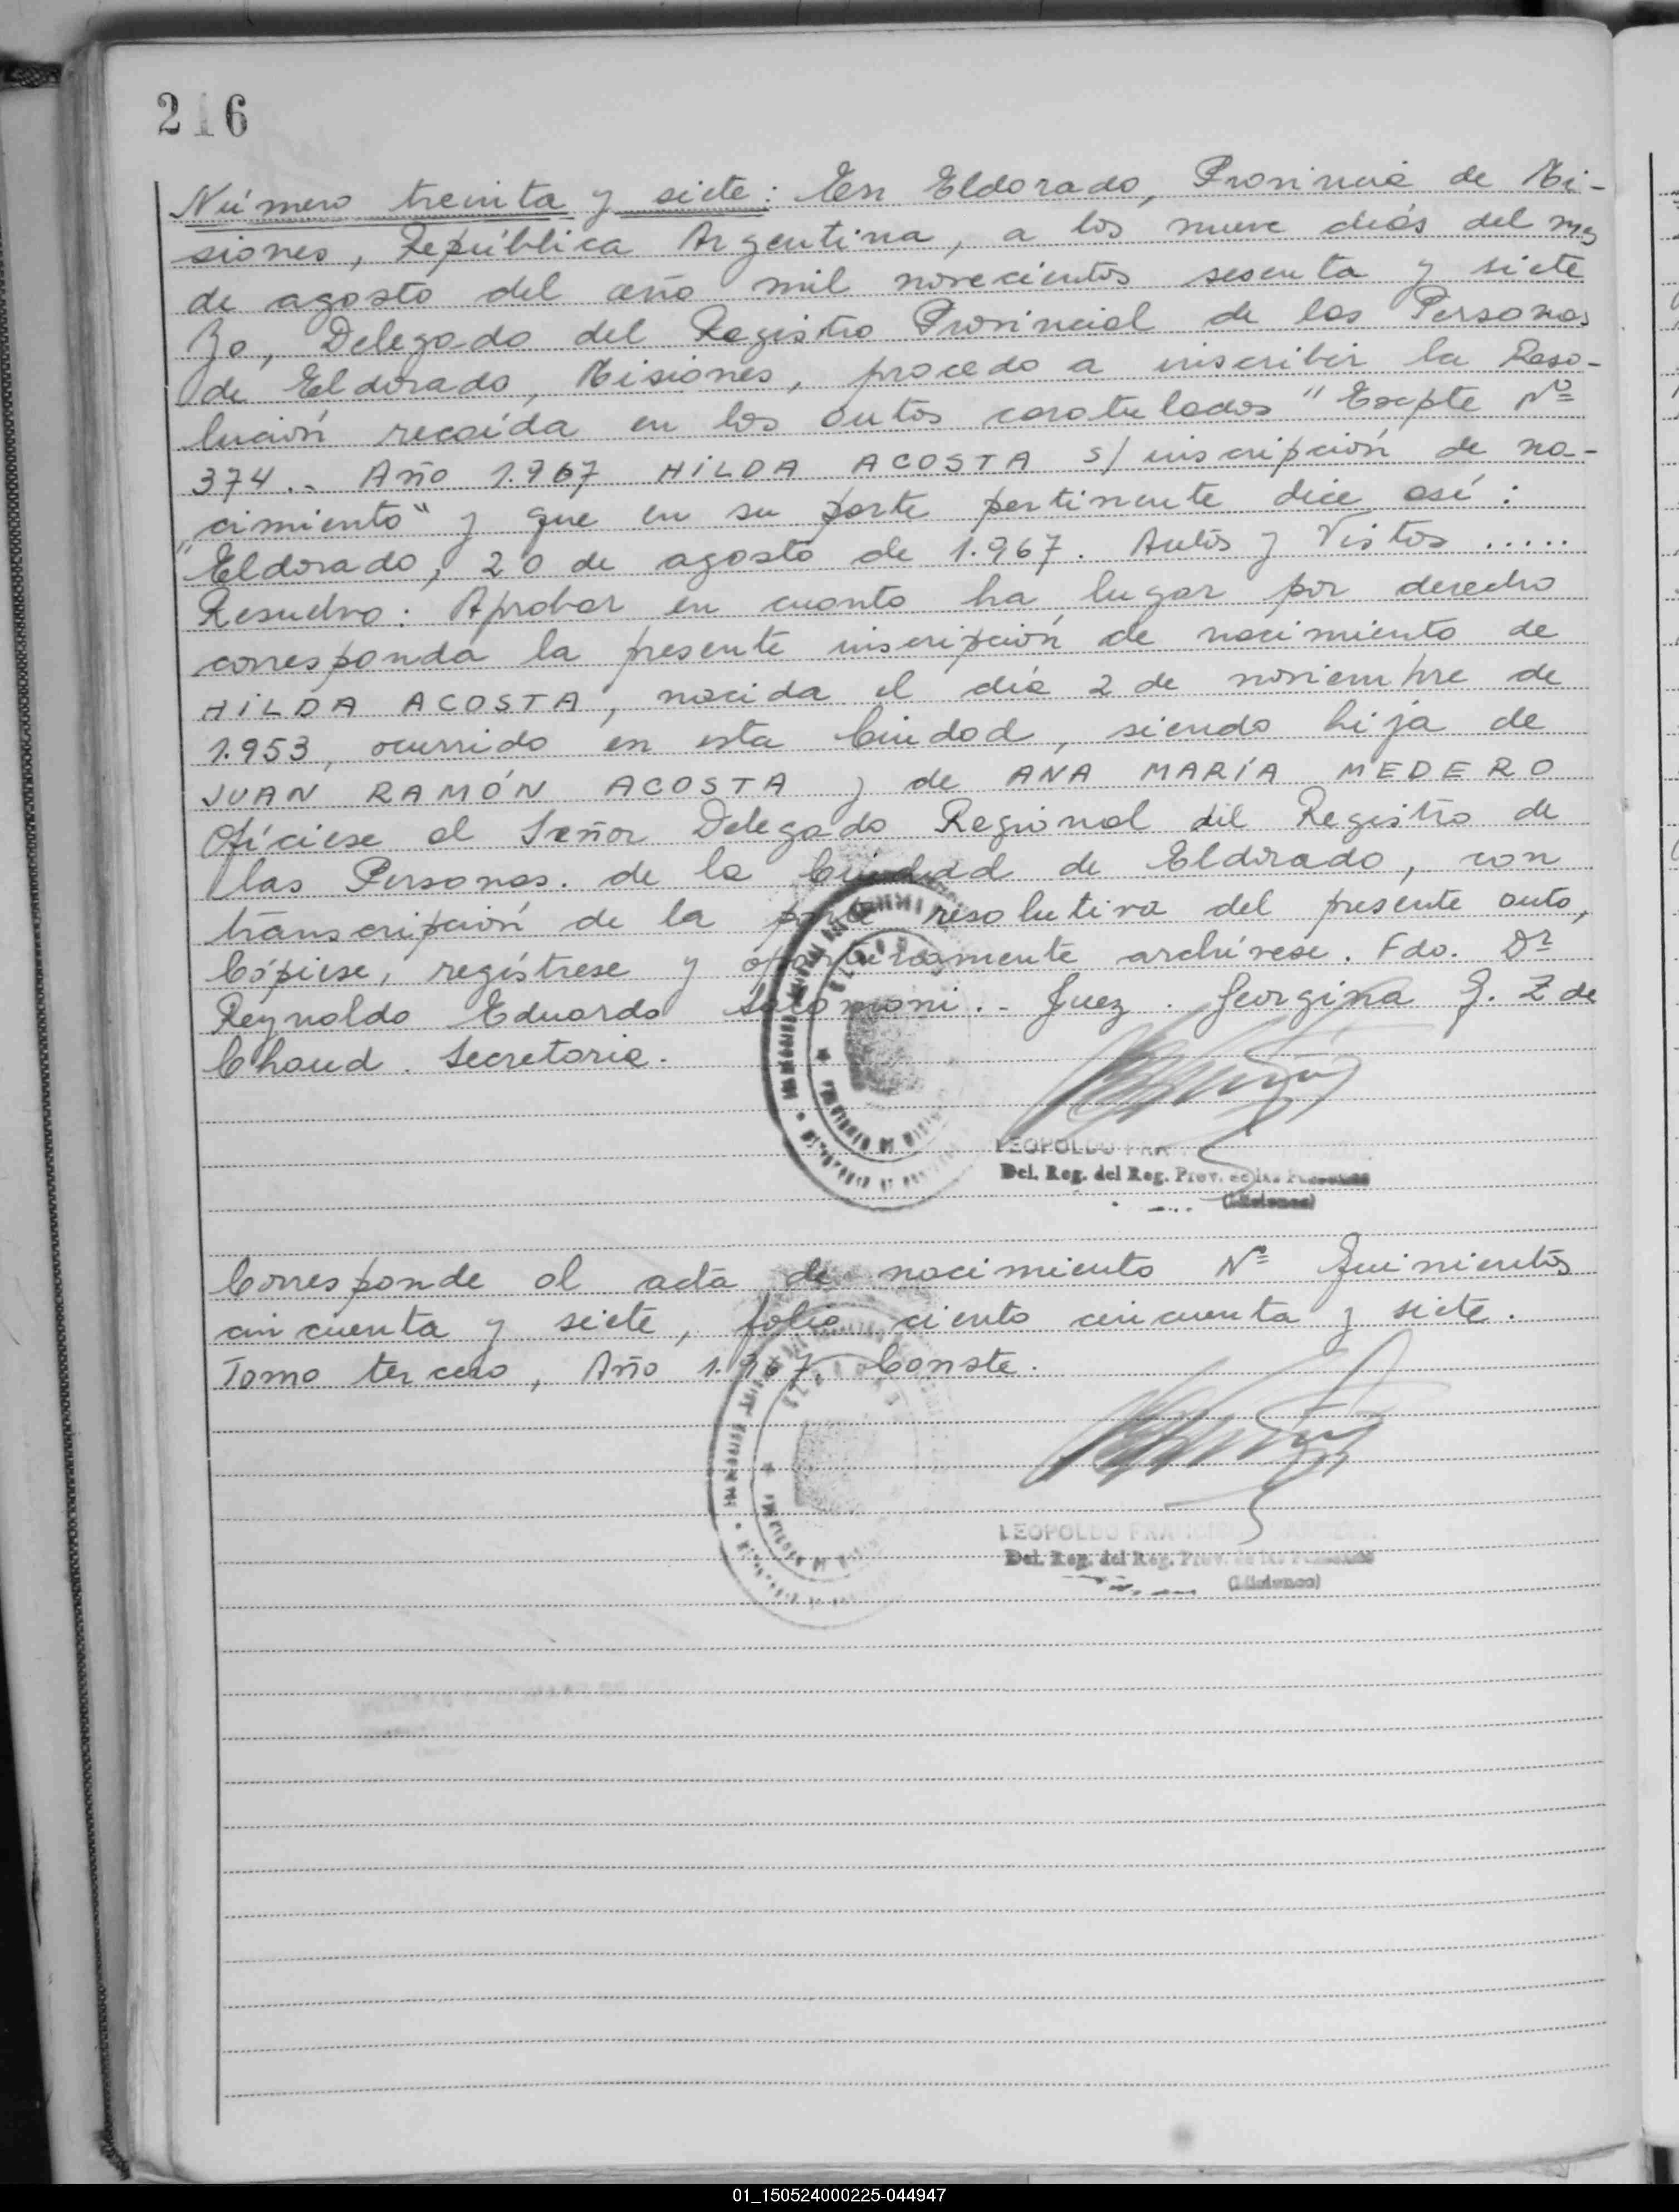 216
Número treinta y siete: En Eldorado, Provincia de Mi-
siones, República Argentina, a los nueve días del mes
de agosto del año mil novecientos sesenta y siete
Yo, Delegado del Registro Provincial de las Personas
de Eldorado, Misiones, procedo a inscribir la Reso-
lución recaída en los autos caratulados "Expte Nº
374.- Año 1.967 HILDA ACOSTA s/ inscripción de na-
cimiento" y que en su parte pertinente dice así:
"Eldorado, 20 de agosto de 1.967. Autos y Vistos .....
Resuelvo: Aprobar en cuanto ha lugar por derecho
corresponda la presente inscripción de nacimiento de
HILDA ACOSTA, nacida el día 2 de noviembre de
1.953, ocurrido en esta Ciudad, siendo hija de
JUAN RAMÓN ACOSTA y de ANA MARÍA MEDERO
Ofíciese al Señor Delegado Regional del Registro de
las Personas. de la Ciudad de Eldorado, con
transcripción de la parte resolutiva del presente auto,
Cópiese, regístrese y oportunamente archívese. Fdo. Dr
Reynaldo Eduardo Salomoni.- Juez. Georgina J. Z de
Chaud. Secretaria.
LEOPOLDO
Del. Reg. del Reg. Prov. de las Personas
(Misiones)
Corresponde al acta de nacimiento Nº Quinientos
cincuenta y siete, folio ciento cincuenta y siete.
Tomo tercero, Año 1.967 Conste.
LEOPOLDO
Del. Reg. del Reg. Prov. de las Personas
(Misiones)
01_150524000225-044947